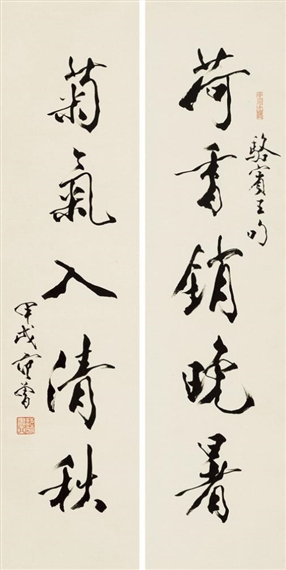 荷香銷晚暑
駱賓王句
菊氣入清秋
甲戌 范曾